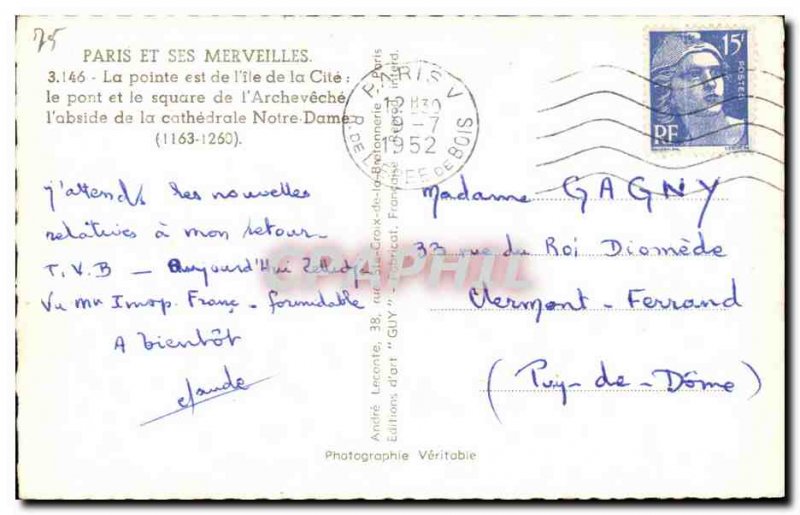 75
PARIS ET SES MERVEILLES.
3.146 - La pointe est de l'île de la Cité :
le pont et le square de l'Archevêché,
l'abside de la cathédrale Notre-Dame
(1163-1260).
j'attends les nouvelles
relatives à mon retour -
T.V.B - Aujourd'Hui
Vu Franç - formidable
A bientôt
Claude
André Leconte, 38, rue Ste-Croix-de-la-Bretonnerie - Paris
Editions d'art "GUY" - Fabricat. Française - Reprod. interd.
Photographie Véritable
PARIS V
-7
1952
R. DE L'EPEE DE BOIS
15F
POSTES
RF
Madame GAGNY
33 rue du Roi Diomède
Clermont-Ferrand
(Puy-de-Dôme)
CPAPHIL